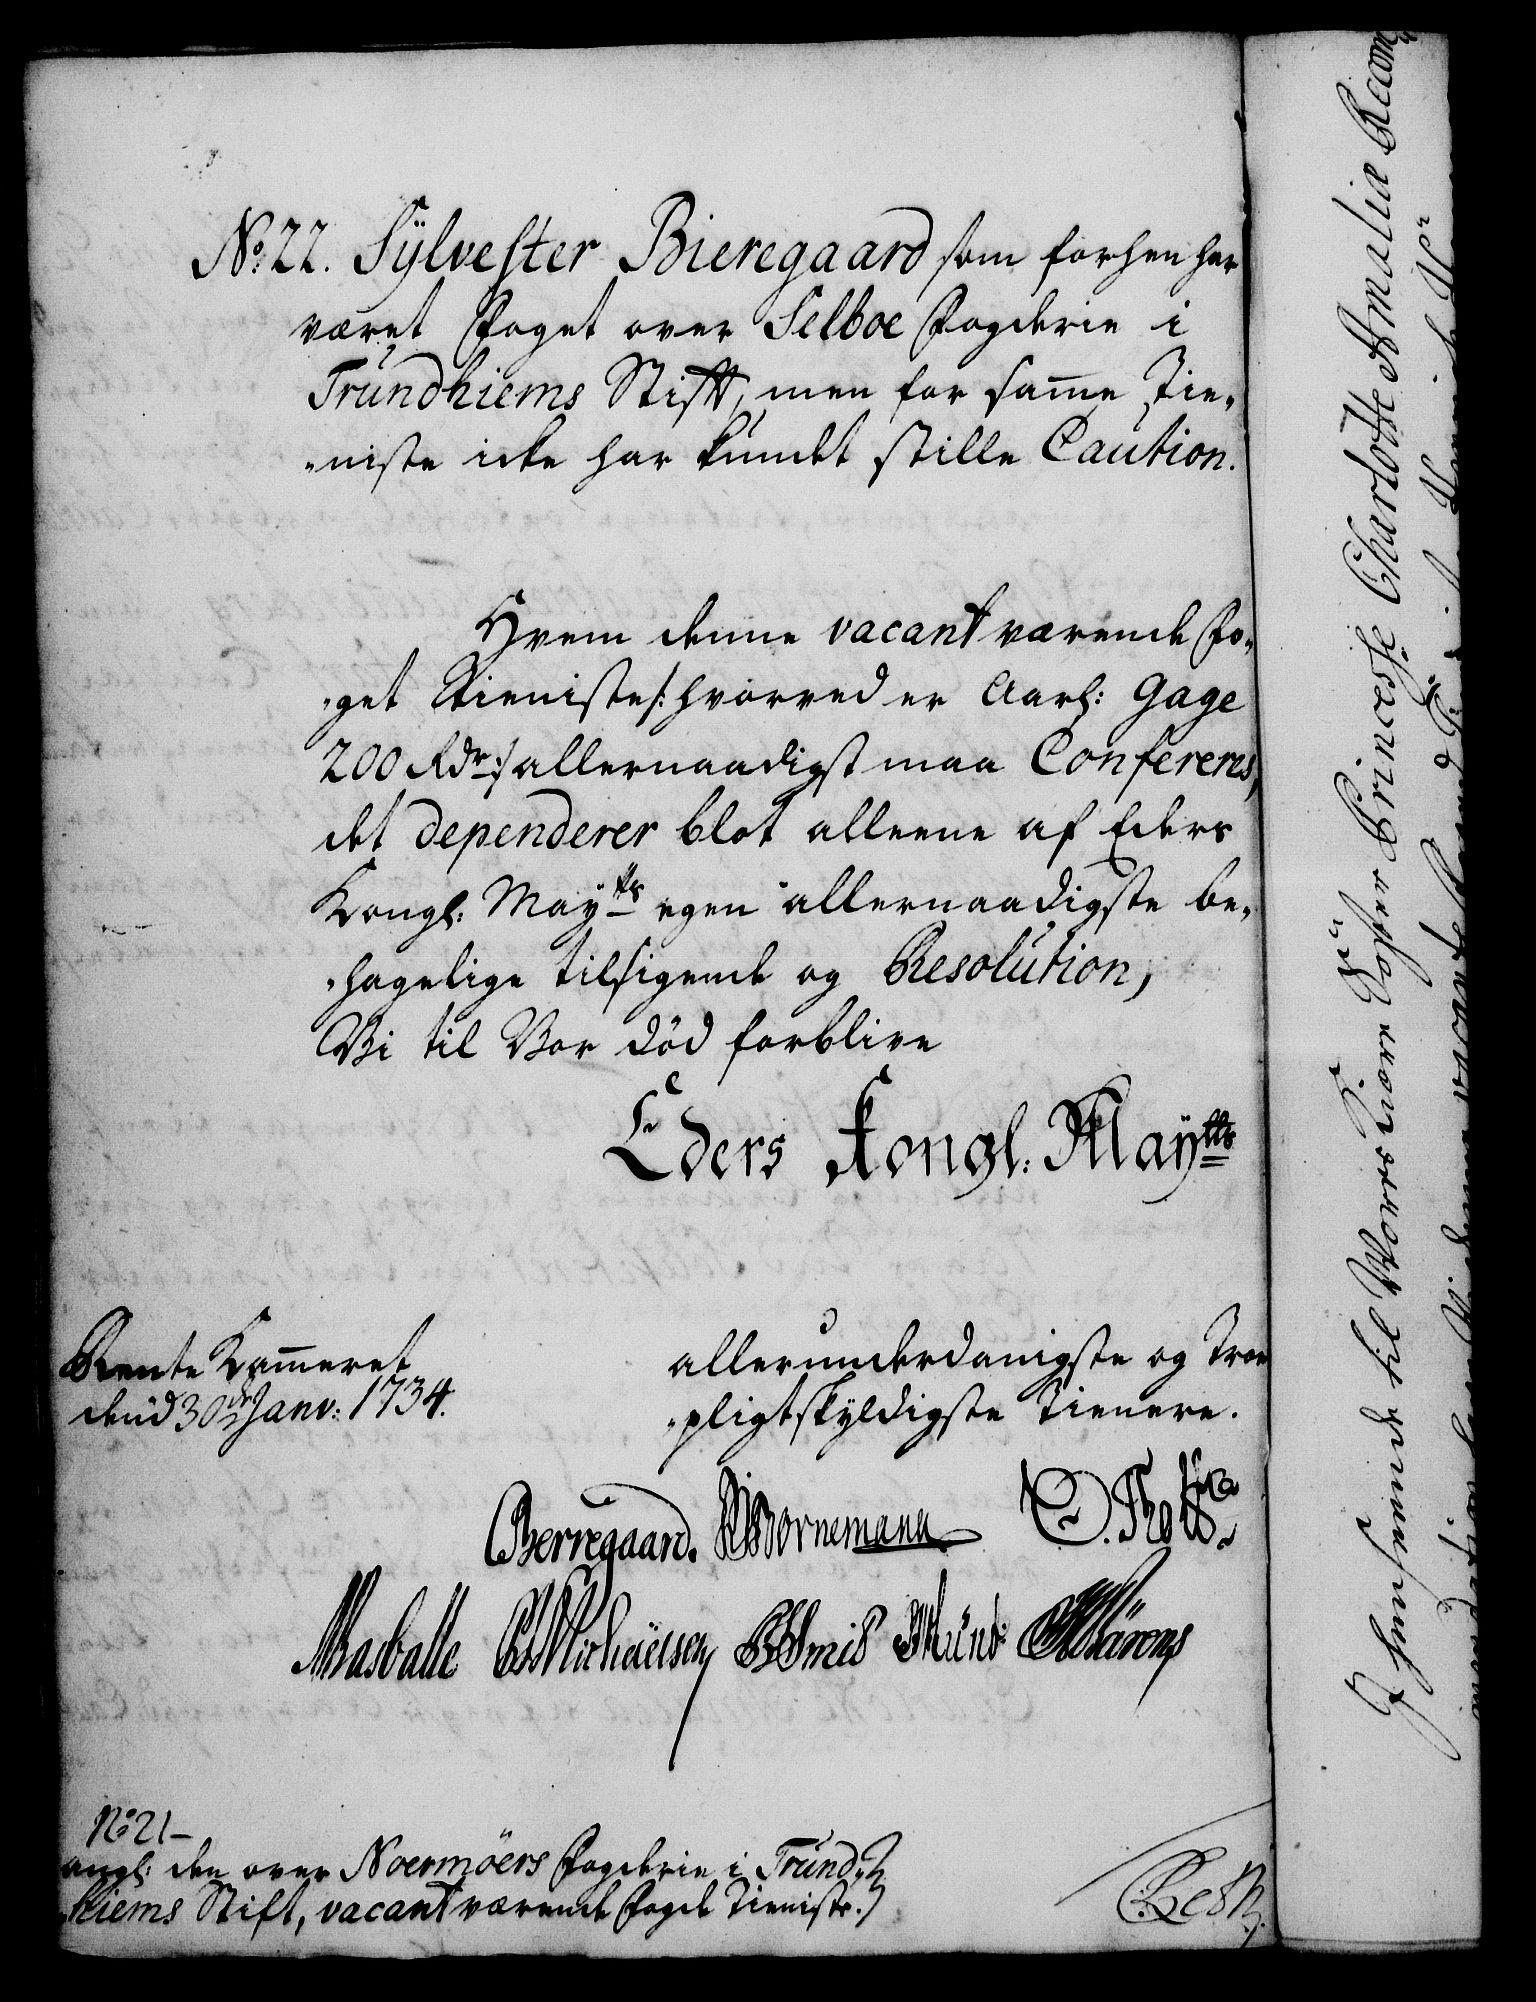 No: 22. Sÿlvester Bieregaard som forhen har
været Foget over Selboe Fogderie i
Trundhiems Stift, men for samme Tie-
-niste icke har kundet stille Caution.
Hvem denne vacant værende Fo-
-get Tieniste /: hvorved er Aarl: Gage
200 Rdr :/ allernaadigst maa Confereres,
det dependerer blot alleene af Eders
Kongl: Mayts egen allernaadigste be-
-hagelige tilsigende og Resolution,
Vi til Vor død forblive
Eders Kongl: Maÿtts
Rente Kammeret
den 30te Janv: 1734.
allerunderdanigste og Troe
-pligtskyldigste Tienere.
Berregaard. Wornemann O. Thott
Basballe Michaëlsen Smid Münt
No: 21
angl: den over Noermöers Fogderie i Trund-
hiems Stift, vacant værende Foged Tieniste.
Indsendt til Vores Kiære Søster Princesse Charlotte Amalia Recom